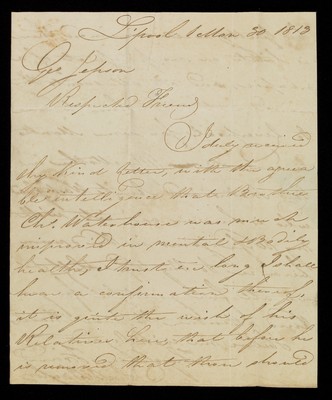 Lpool 1 Mon. 30 1813
Geo Jepson
Respected Friend
I duly received
thy kind letter, with the agree
able intelligence that Brother
Chs. Waterhouse was much
improved in mental & Bodily
health, I trust ere long I shall
have a confirmation thereof,
it is quite the wish of his
Relatives here, that before he
is removed that there should